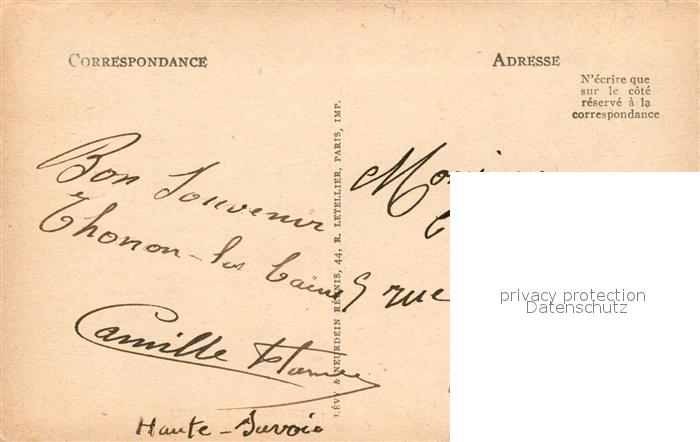 CORRESPONDANCE
ADRESSE
N'écrire que
sur le côté
réservé à la
correspondance
Bon Souvenir
Thonon-les bains
Camille
Haute-Savoie
LÉVY & NEURDEIN RÉUNIS, 44, R. LETELLIER, PARIS, IMP.
rue
privacy protection
Datenschutz